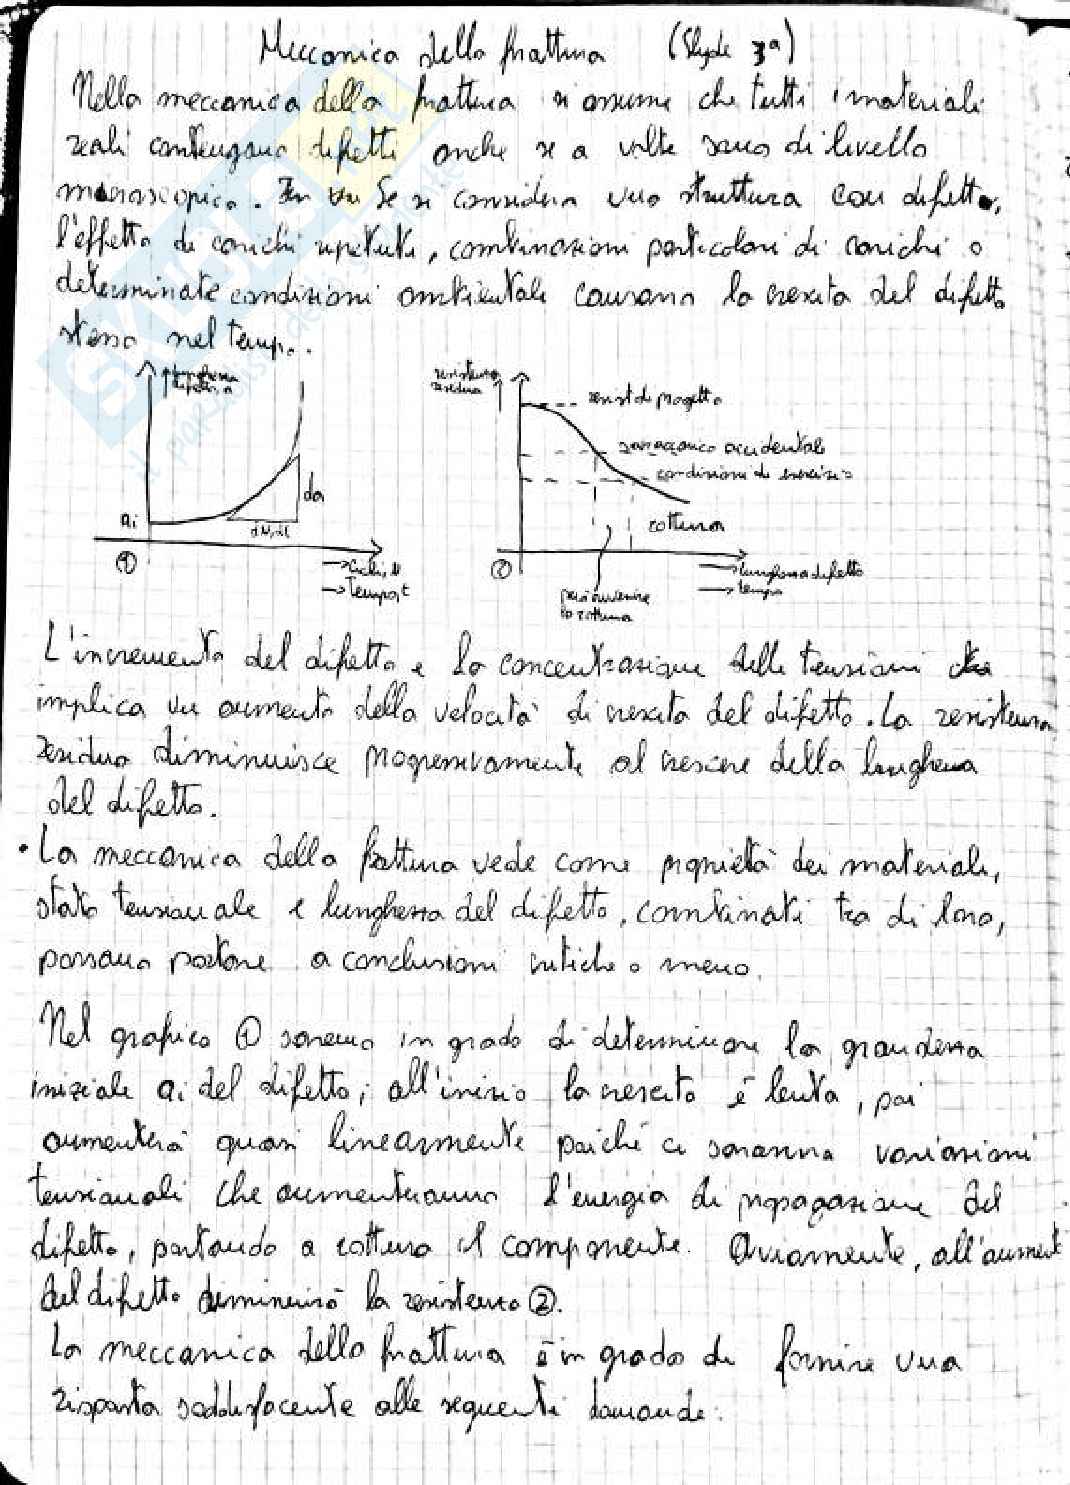 Meccanica della frattura (Slyde 3ª)
Nella meccanica della frattura si assume che tutti i materiali
reali contengano difetti anche se a volte sono di livello
microscopico. Se si considera una struttura con difetto,
l'effetto di carichi ripetuti, combinazioni particolari di carichi o
determinate condizioni ambientali causano la crescita del difetto
stesso nel tempo.
lunghezza
difetto, a
ai
da
dN, dt
→ Cicli, N
→ Tempo, t
①
resistenza
residua
resist di progetto
sovraccarico accidentale
condizioni di esercizio
rottura
può avvenire
la rottura
→ lunghezza difetto
→ tempo
②
L'incremento del difetto e la concentrazione delle tensioni
implica un aumento della velocità di crescita del difetto. La resistenza
residua diminuisce progressivamente al crescere della lunghezza
del difetto.
• La meccanica della frattura vede come proprietà dei materiali,
stato tensionale e lunghezza del difetto, combinati tra di loro,
possano portare a conclusioni critiche o meno.
Nel grafico ① saremo in grado di determinare la grandezza
iniziale ai del difetto; all'inizio la crescita è lenta, poi
aumenterà quasi linearmente poiché ci saranno variazioni
tensionali che aumenteranno l'energia di propagazione del
difetto, portando a rottura il componente. Ovviamente, all'aument
del difetto diminuirà la resistenza ②.
La meccanica della frattura è in grado di fornire una
risposta soddisfacente alle seguenti domande:
SKUOLA
il paradiso dello studente